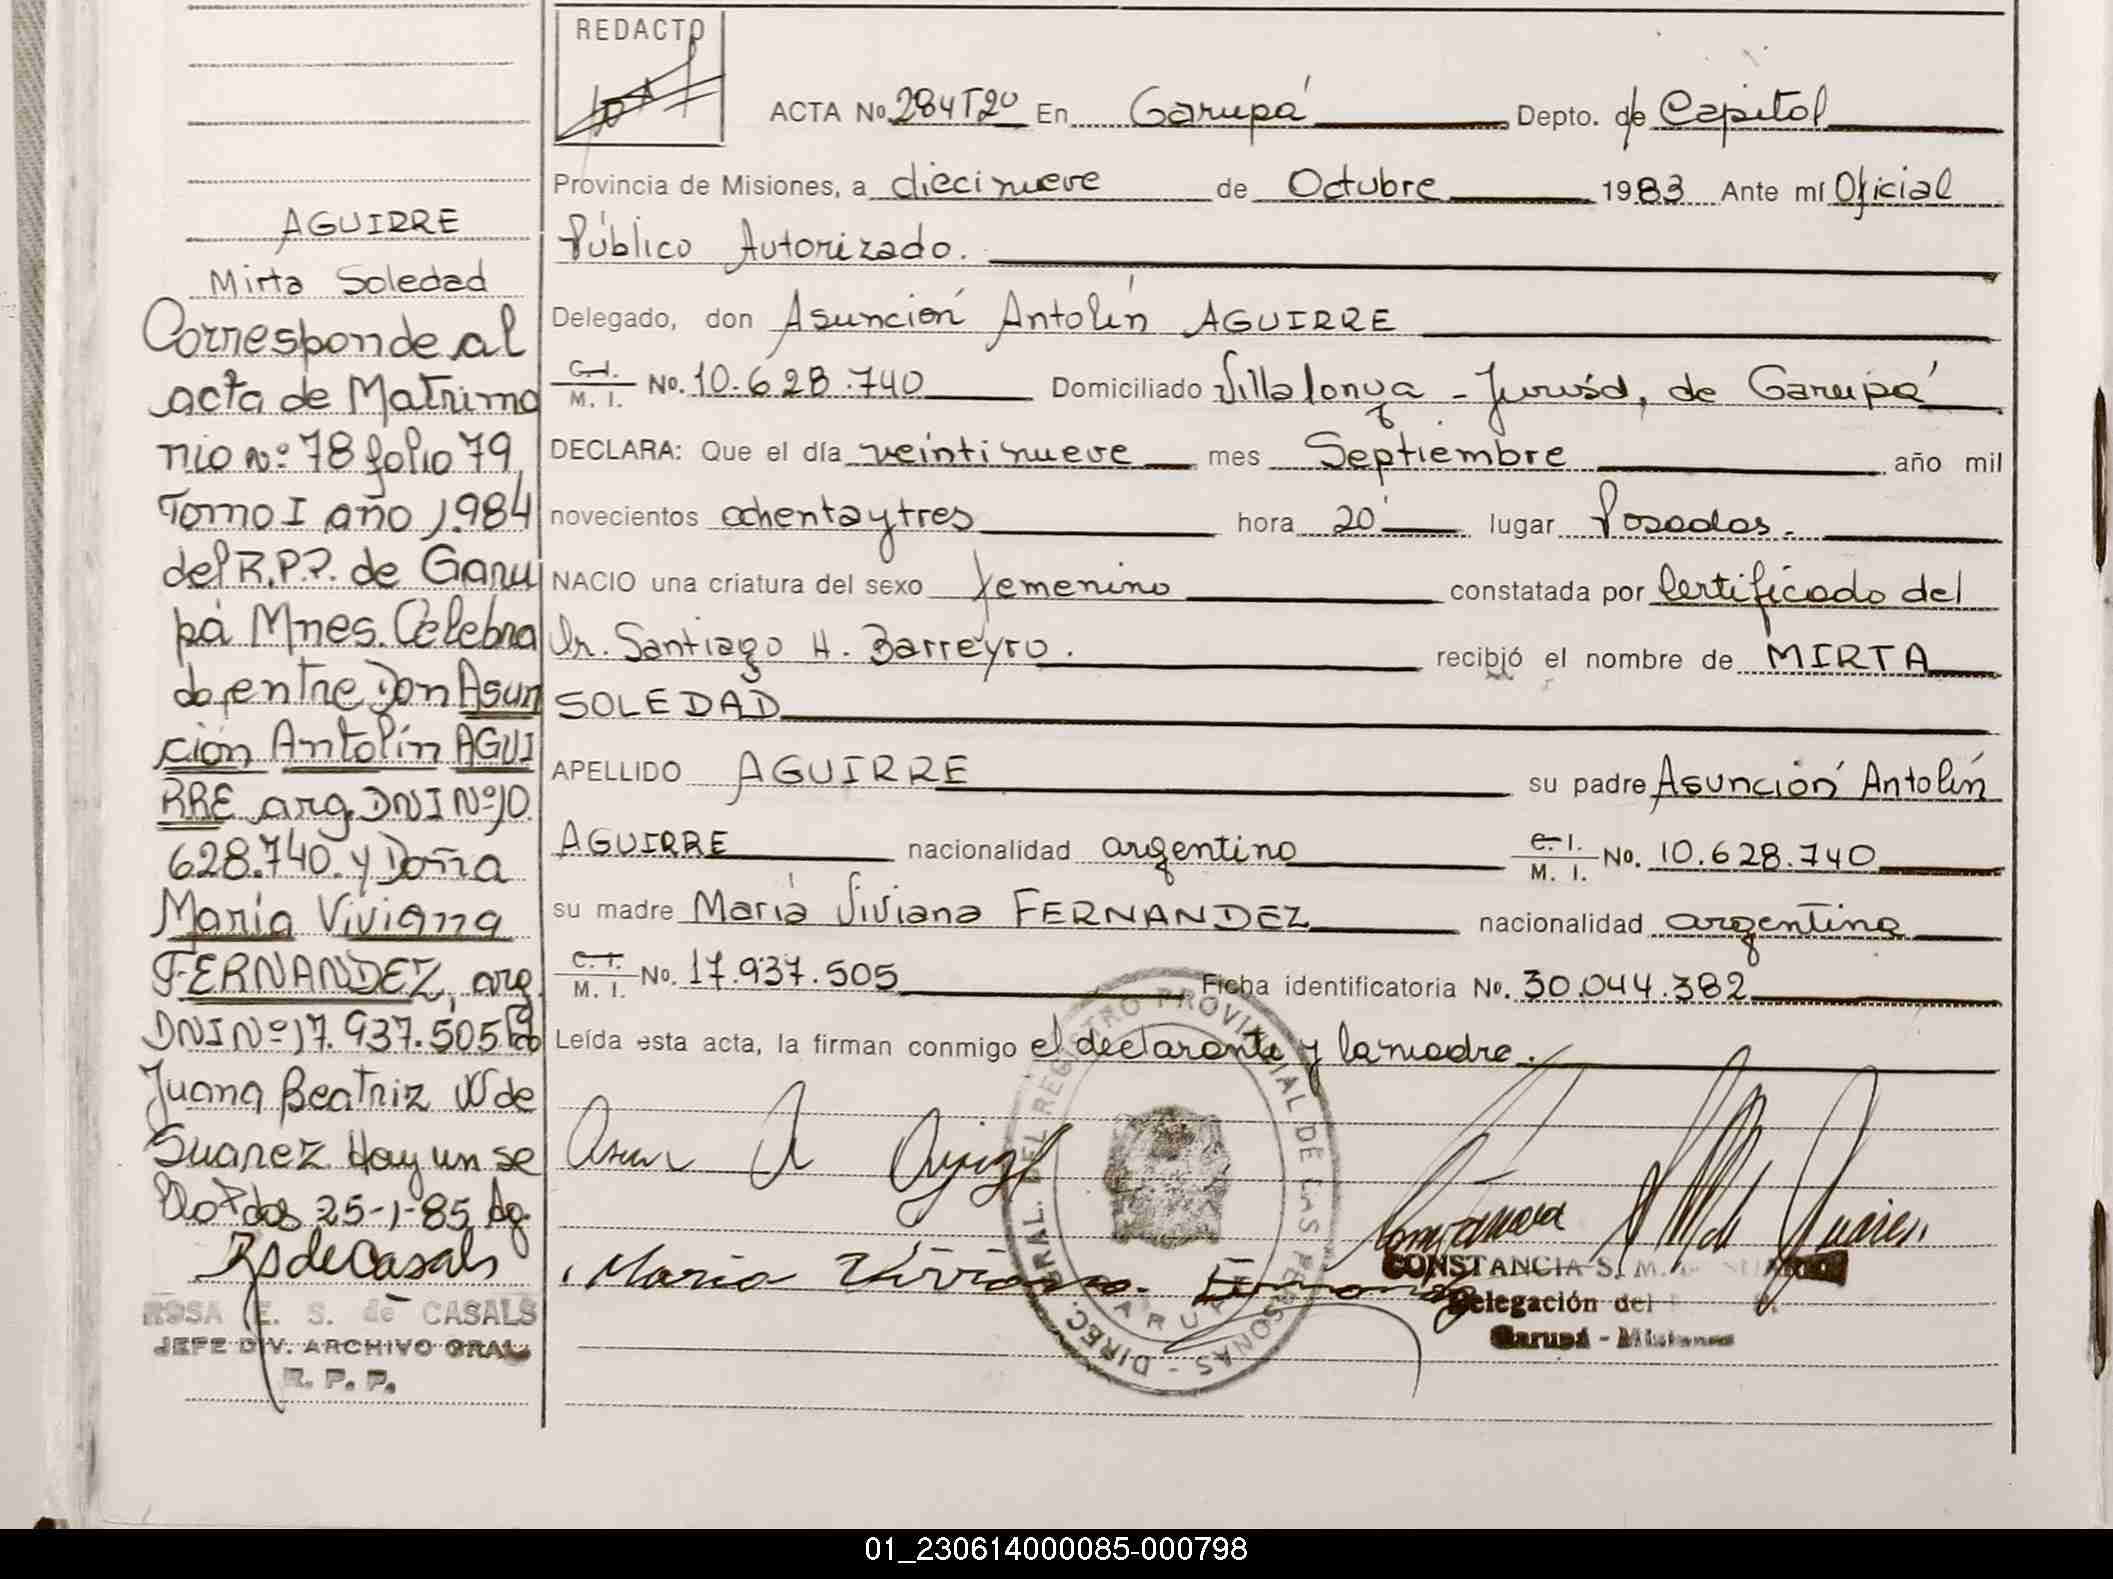 AGUIRRE
Mirta Soledad
Corresponde al
acta de Matrimo
nio Nº 78 folio 79
Tomo I año 1.984
del R.P.P. de Garu
pá Mnes. Celebra
do entre Don Asun
ción Antolín AGUI
RRE arg. DNI Nº 10.
628.740. y Doña
María Viviana
FERNANDEZ, arg.
DNI Nº 17.937.505
Juana Beatriz W de
Suarez Hay un se
llo Pdas 25-1-85
Rs de Casals
ROSA E. S. de CASALS
JEFE DIV. ARCHIVO GRAL.
R. P. P.
REDACTO
ACTA No. 284T20 En Garupá Depto. de Capital
Provincia de Misiones, a diecinueve de Octubre 1983 Ante mí Oficial
Público Autorizado.
Delegado, don Asunción Antolín AGUIRRE
C.I. M. I. No. 10.628.740 Domiciliado Villalonga - Jurisd, de Garupá
DECLARA: Que el día veintinueve mes Septiembre año mil
novecientos ochentaytres hora 20 lugar Posadas.
NACIO una criatura del sexo femenino constatada por Certificado del
Dr. Santiago H. Barreyro. recibió el nombre de MIRTA
SOLEDAD
APELLIDO AGUIRRE su padre Asunción Antolín
AGUIRRE nacionalidad argentino C.I. M. I. No. 10.628.740
su madre María Viviana FERNANDEZ nacionalidad argentina
C.I. M. I. No. 17.937.505 Ficha identificatoria No. 30.044.382
Leída esta acta, la firman conmigo el declarante y la madre.
DIREC. GRAL. DEL REGISTRO PROVINCIAL DE LAS PERSONAS - GARUPA
Maria Viviana Fernandez
CONSTANCIA S. M. de SUAREZ
Delegación del
Garupá - Misiones
01_230614000085-000798